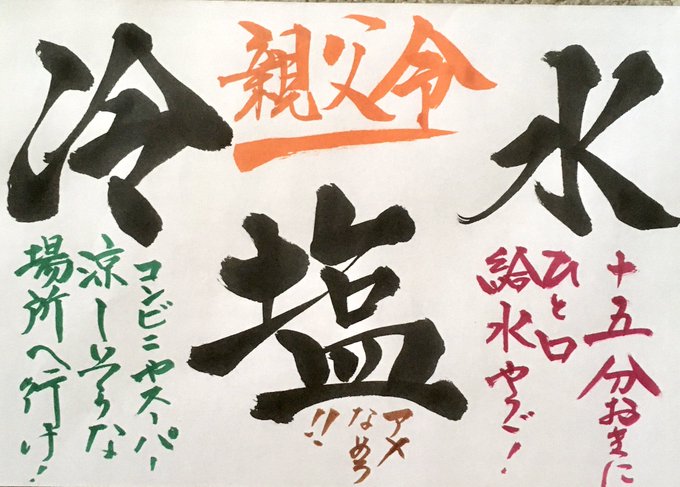 親父令
水
十五分おきに
ひと口
給水やぞ!
塩
アメ
なめろ
!!
冷
コンビニやスーパー
涼しそうな
場所へ行け!